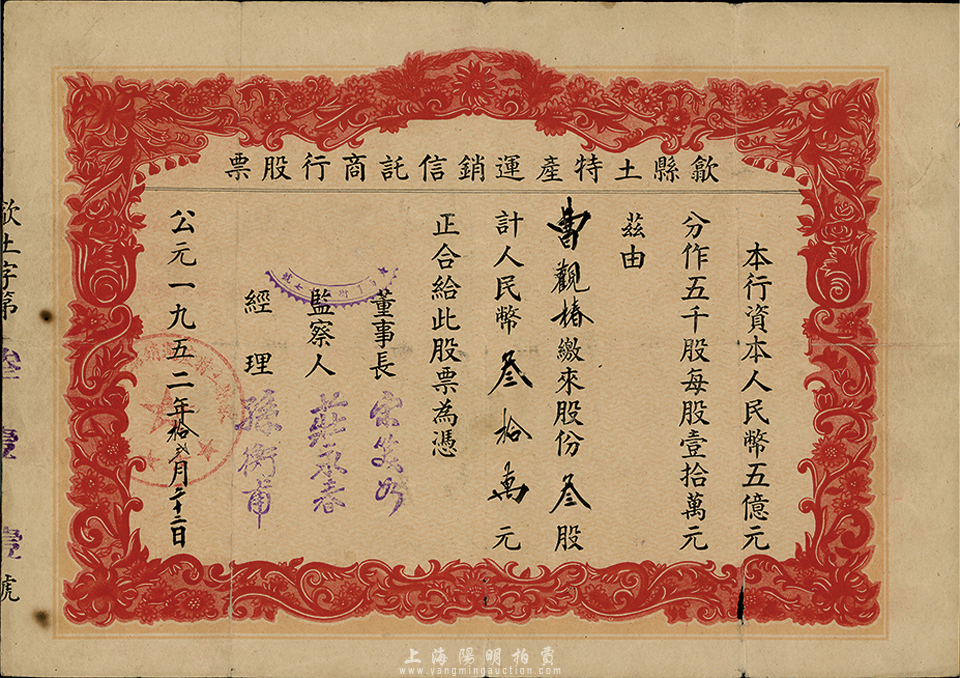 歙縣土特產運銷信託商行股票
本行資本人民幣五億元
分作五千股每股壹拾萬元
茲由
曹觀椿繳來股份叁股
計人民幣叁拾萬元
正合給此股票為憑
董事長
監察人 莊永春
經理 孫衡甫
公元一九五二年拾弍月二十二日
歙土字第叁壹壹號
上海陽明拍賣
www.yangmingauction.com